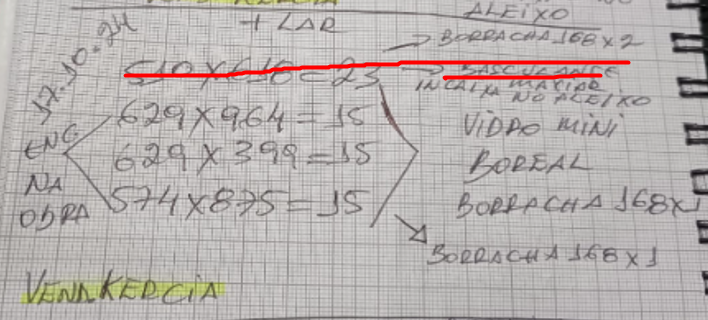 + LAR
ALEIXO
BORRACHA 168 X 2
17.10.24
510 X 610 = 23
BASCULANTE
INCAIXA MAXIAR
NO ALEIXO
629 X 964 = 15
VIDRO MINI
ENC
629 X 399 = 15
BOREAL
NA
OBRA
574 X 875 = 15
BORRACHA 168 X 1
BORRACHA 168 X 1
VENAKERCIA